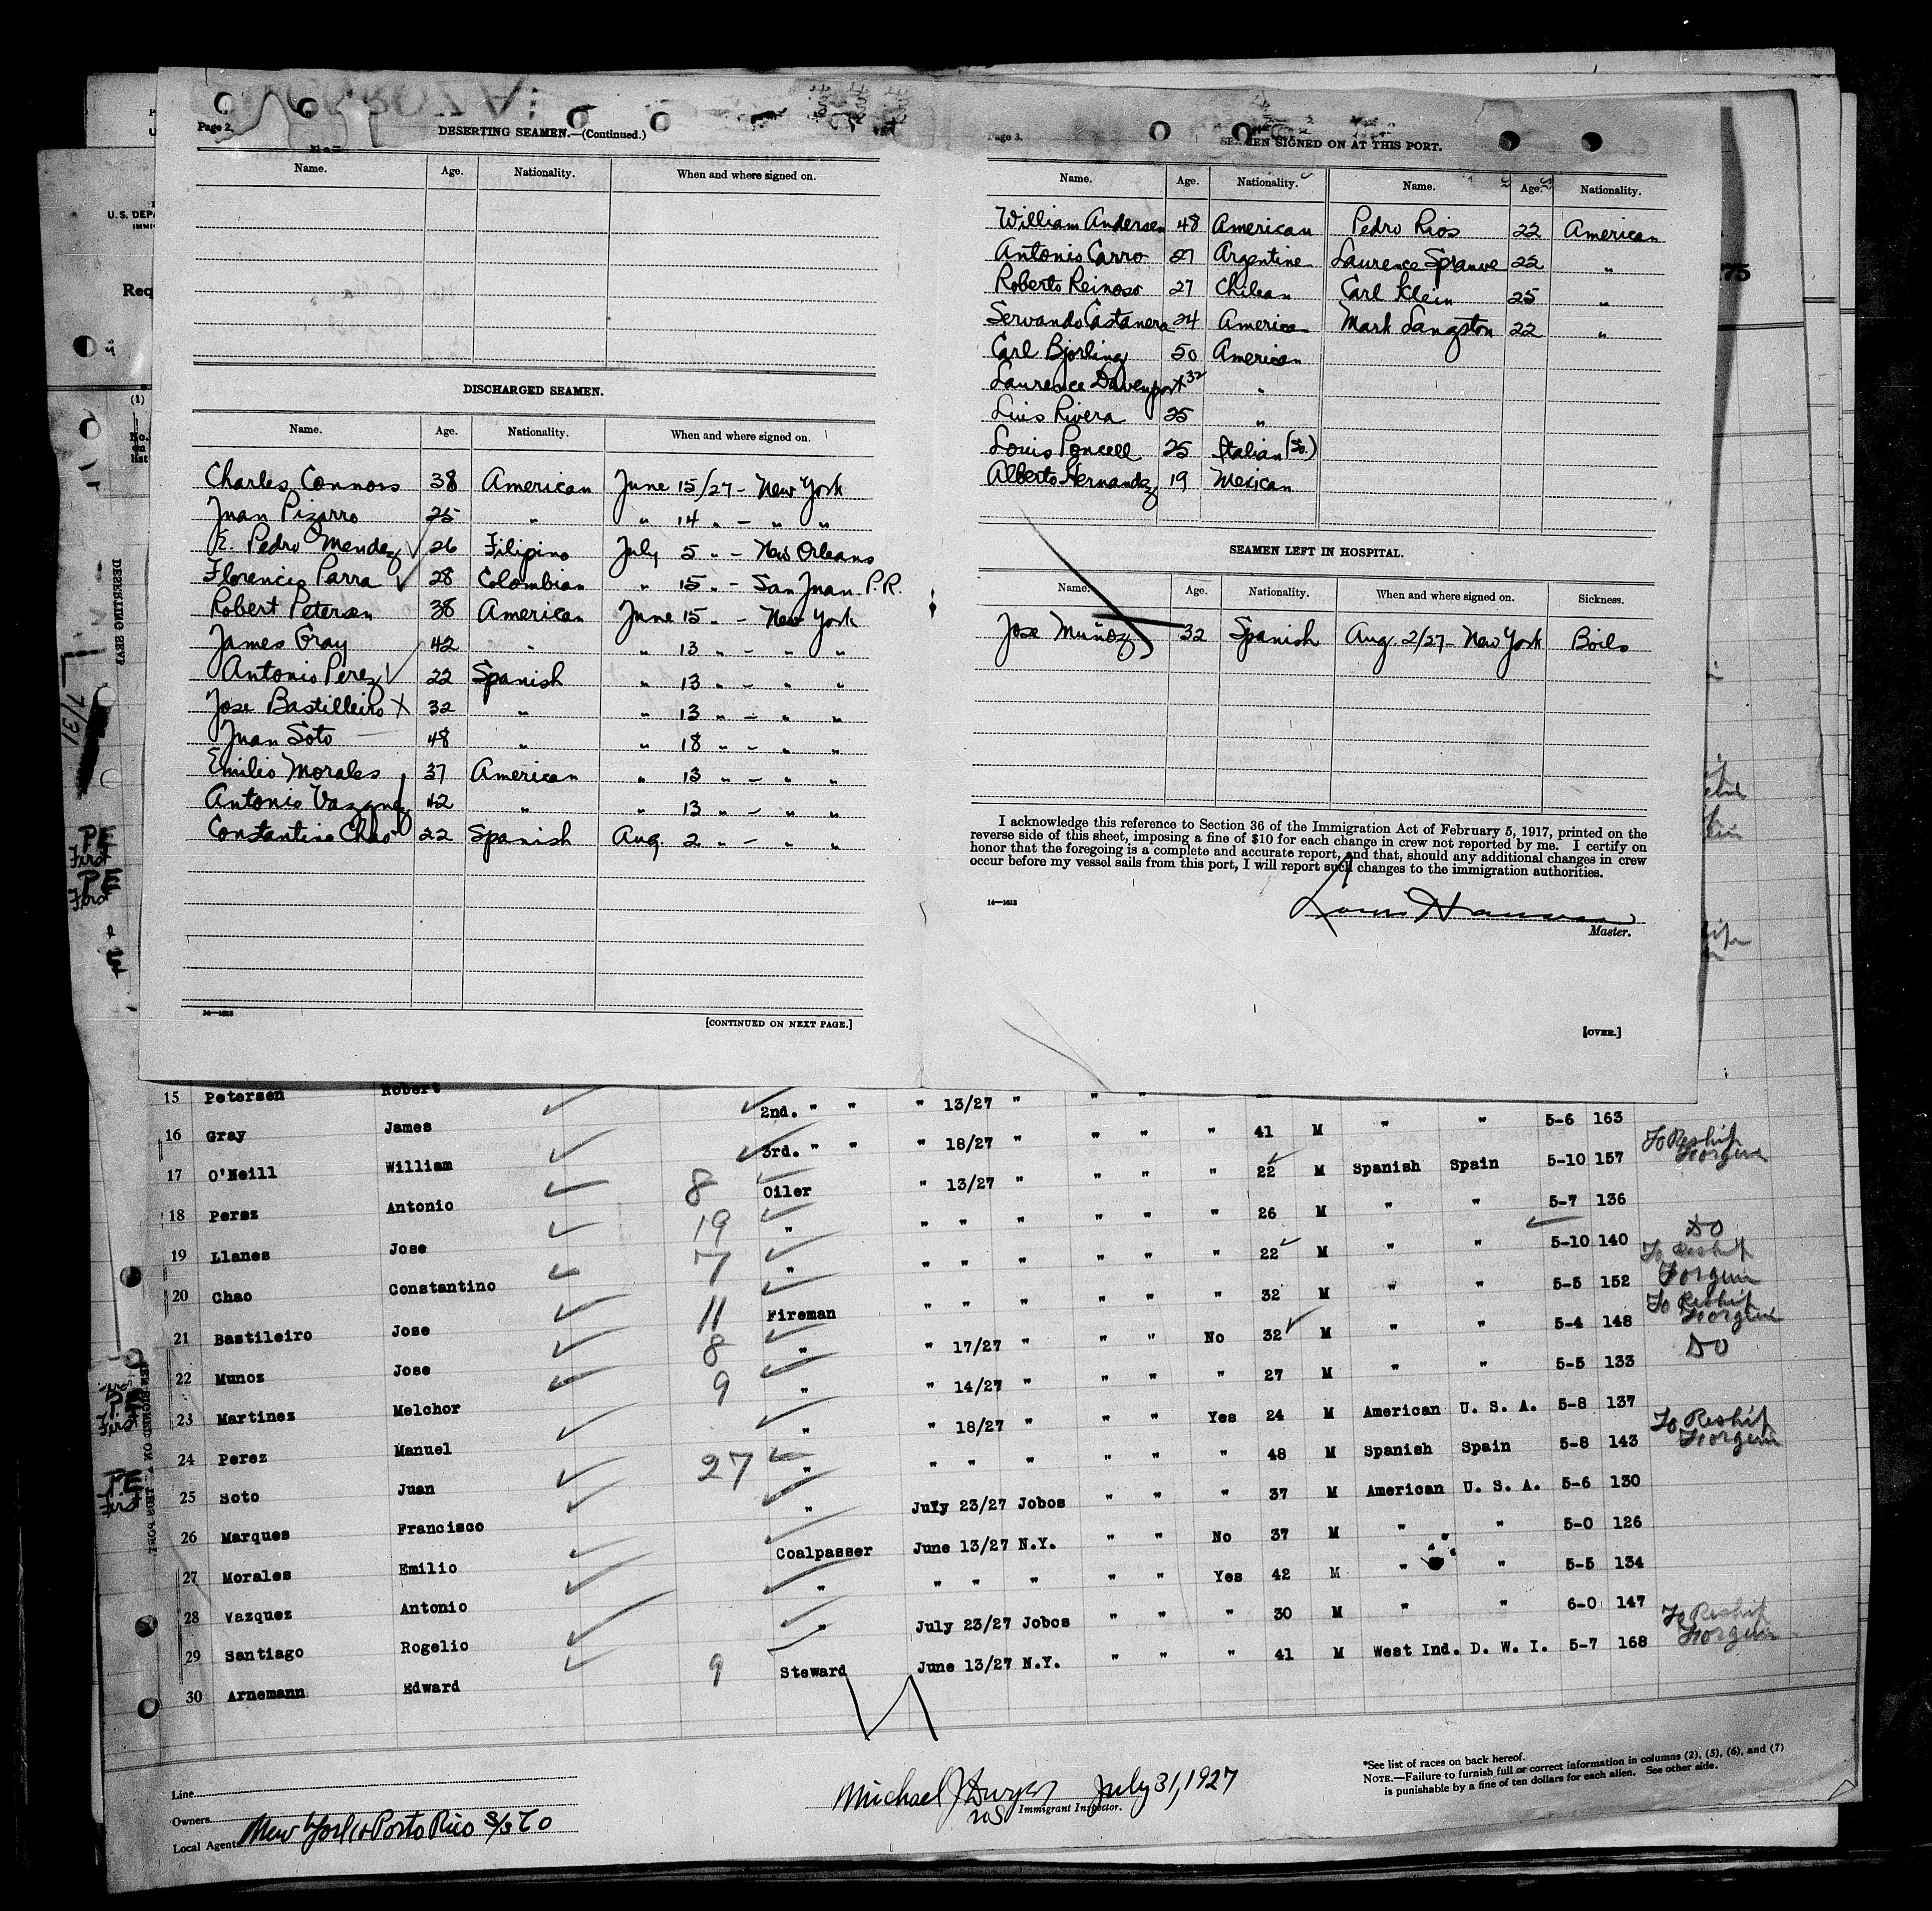 Page 2.
DESERTING SEAMEN.—(Continued.)
Name. Age. Nationality. When and where signed on.
DISCHARGED SEAMEN.
Name. Age. Nationality. When and where signed on.
Charles Connors 38 American June 15/27 - New York
Juan Pizarro 25 " " 14 " - " "
E. Pedro Mendez 26 Filipino July 5 " - New Orleans
Florencio Parra 28 Colombian " 15 " - San Juan P.R.
Robert Petersen 38 American June 15 " - New York
James Gray 42 " " 13 " - " "
Antonio Perez 22 Spanish " 13 " - " "
Jose Bastilleiro X 32 " " 13 " - " "
Juan Soto 48 " " 18 " - " "
Emilio Morales 37 American " 13 " - " "
Antonio Vazquez 42 " " 13 " - " "
Constantino Chao 22 Spanish Aug. 2 " - " "
14—1613
[CONTINUED ON NEXT PAGE.]
Page 3.
SEAMEN SIGNED ON AT THIS PORT.
Name. Age. Nationality. Name. Age. Nationality.
William Andersen 48 American Pedro Rios 22 American
Antonio Carro 27 Argentine Laurence Spranve 22 "
Roberto Reinoso 27 Chilean Carl Klein 25 "
Servando Castanera 24 American Mark Langston 22 "
Carl Bjorling 50 American
Laurence Davenport 32 "
Luis Rivera 25 "
Louis Poncell 25 Italian (So.)
Alberto Hernandez 19 Mexican
SEAMEN LEFT IN HOSPITAL.
Name. Age. Nationality. When and where signed on. Sickness.
Jose Muñoz 32 Spanish Aug. 2/27 - New York Boils
I acknowledge this reference to Section 36 of the Immigration Act of February 5, 1917, printed on the
reverse side of this sheet, imposing a fine of $10 for each change in crew not reported by me. I certify on
honor that the foregoing is a complete and accurate report, and that, should any additional changes in crew
occur before my vessel sails from this port, I will report such changes to the immigration authorities.
14—1613
Master.
[OVER.]
U.S. DEPA
IMMI
Req
(1)
No.
on
list
75
7/31
PE
First
PE
First
15 Petersen Robert 2nd. " " " 13/27 " " "
16 Gray James 3rd. " " " 18/27 " " " " 41 M " " 5-6 163
17 O'Neill William 8 Oiler " 13/27 " " " " 22 M Spanish Spain 5-10 157 To Reship Foreign
18 Perez Antonio 19 " " " " " " " 26 M " " 5-7 136
19 Llanes Jose 7 " " " " " " " 22 M " " 5-10 140 DO
20 Chao Constantino 11 Fireman " " " " " " 32 M " " 5-5 152 To Reship Foreign
21 Bastileiro Jose 8 " " 17/27 " " " No 32 M " " 5-4 148 To Reship Foreign
22 Munoz Jose 9 " " 14/27 " " " " 27 M " " 5-5 133 DO
23 Martinez Melchor " " 18/27 " " " Yes 24 M American U. S. A. 5-8 137
24 Perez Manuel 27 " " " " " " " 48 M Spanish Spain 5-8 143 To Reship Foreign
25 Soto Juan " July 23/27 Jobos " " " 37 M American U. S. A. 5-6 130
26 Marques Francisco Coalpasser June 13/27 N.Y. " " No 37 M " " 5-0 126
27 Morales Emilio " " " " " " Yes 42 M " " 5-5 134
28 Vazquez Antonio " July 23/27 Jobos " " " 30 M " " 6-0 147
29 Santiago Rogelio 9 Steward June 13/27 N.Y. " " " 41 M West Ind. D. W. I. 5-7 168 To Reship Foreign
30 Arnemann Edward
Line
Owners
Local Agents New York & Porto Rico S/S Co
July 31, 1927
Immigrant Inspector.
*See list of races on back hereof.
NOTE.—Failure to furnish full or correct information in columns (2), (5), (6), and (7)
is punishable by a fine of ten dollars for each alien. See other side.